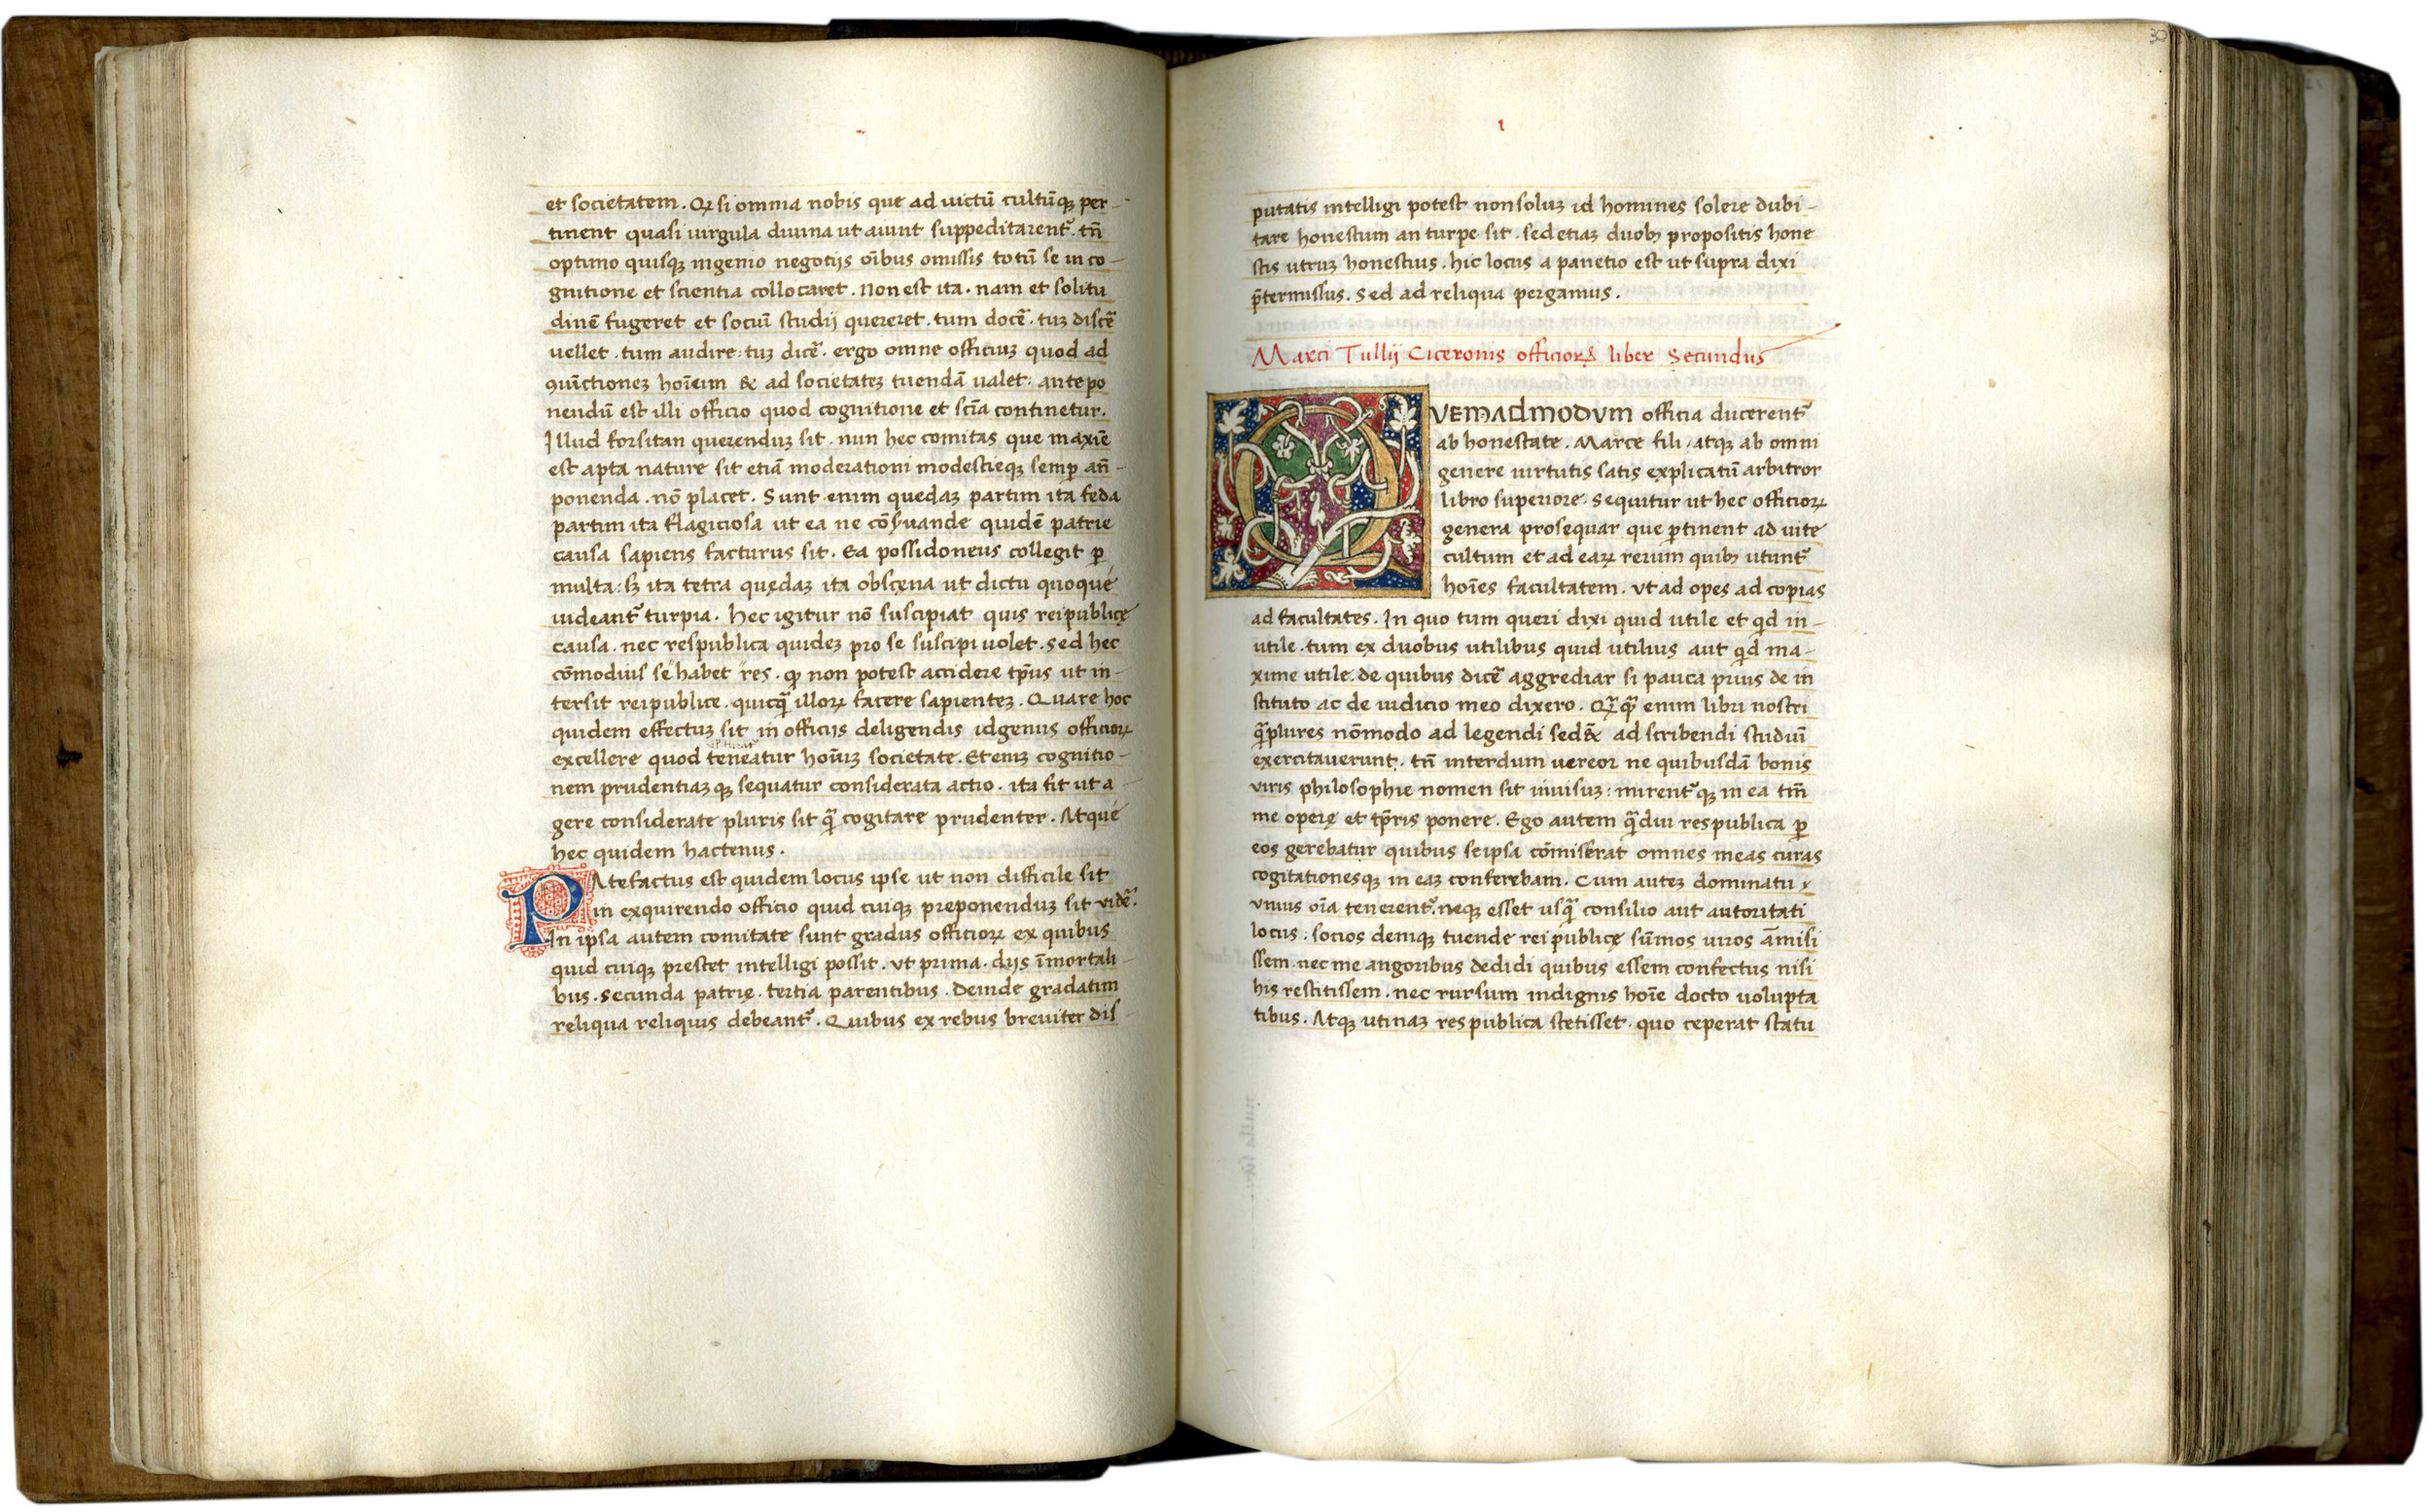 et societatem. Qꝫ si omnia nobis que ad uictū cultūqꝫ per-
tinent quasi uirgula diuina ut aiunt suppeditarent᷑. tn̄
optimo quisqꝫ ingenio negotijs oībus omissis totū se in co-
gnitione et scientia collocaret. Non est ita. nam et solitu
dinē fugeret et sociū studij quereret. tum docē̄. tuꝫ discē̄
uellet. tum audire: tuꝫ dicē̄. ergo omne officiuꝫ quod ad
ꝯiūctioneꝫ hoīeum & ad societateꝫ tuendā ualet: antepo
nendū est illi officio quod cognitione et scīa continetur.
Illud forsitan querenduꝫ sit. nun hec comitas que maxīe
est apta nature sit etiā moderationi modestieqꝫ semp̱ an̄-
ponenda. nō placet. Sunt enim quedaꝫ partim ita feda
partim ita flagiciosa ut ea ne cōs̄uande quidē patrie
causa sapiens facturus sit. Ea possidoneus collegit ꝑ
multa: sꝫ ita tetra quędaꝫ ita obscęna ut dictu quoque
uideant᷑ turpia. hec igitur nō suscipiat quis reipublicę
causa. nec respublica quideꝫ pro se suscipi uolet. sed hec
cōmodius se habet res. ꝙ non potest accidere tp̄us ut in-
tersit reipublice. quicqͣ illoꝝ facere sapienteꝫ. Quare hoc
quidem effectuꝫ sit in officijs deligendis idgenus officioꝝ
excellere quod teneatur hoīuꝫ societate. Eteniꝫ cognitio-
nem prudentiaꝫqꝫ sequatur considerata actio. ita fit ut a
gere considerate pluris sit qͣ cogitare prudenter. Atque
hec quidem hactenus.
PAtefactus est quidem locus ipse ut non difficile sit
in exquirendo officio quid cuiqꝫ preponenduꝫ sit vidē̄.
In ipsa autem comitate sunt gradus officioꝝ ex quibus
quid cuiqꝫ prestet intelligi possit. vt prima. dijs īmortali-
bus. secunda patrię. tertia parentibus. deinde gradatim
reliqua reliquis debeant᷑. Quibus ex rebus breuiter dis-
30
putatis intelligi potest non soluꝫ id homines solere dubi-
tare honestum an turpe sit. sed etiaꝫ duobꝫ propositis hone
stis utruꝫ honestius. hic locus a panetio est ut supra dixi
p̄termissus. sed ad reliqua pergamus.
Marci Tullij Ciceronis officioꝝ liber Secundus
QVEMADMODVM officia ducerent᷑
ab honestate. Marce fili. atqꝫ ab omni
genere uirtutis satis explicatū arbitror
libro superiore. sequitur ut hec officioꝝ
genera prosequar que ꝑtinent ad uite
cultum et ad eaꝝ rerum quibꝫ utunt᷑
hoīes facultatem. vt ad opes ad copias
ad facultates. In quo tum queri dixi quid utile et qͥd in-
utile. tum ex duobus utilibus quid utilius aut qͥd ma-
xime utile. de quibus dicē̄ aggrediar si pauca prius de in
stituto ac de iudicio meo dixero. Qꝫqͣ enim libri nostri
qͣplures nōmodo ad legendi sed& ad scribendi studiū
exercitauerunt. tn̄ interdum uereor ne quibusdā bonis
viris philosophie nomen sit inuisuꝫ: mirent᷑qꝫ in ea tm̄
me operę et tp̄ris ponere. Ego autem qͣdiu respublica ꝑ
eos gerebatur quibus seipsa cōmiserat omnes meas curas
cogitationesqꝫ in eaꝫ conferebam. Cum auteꝫ dominatu
vnius oīa tenerent᷑. neqꝫ esset usqͣ consilio aut autoritati
locus. socios deniqꝫ tuende rei publicę sūmos uiros āmisi
ssem. nec me angoribus dedidi quibus essem confectus nisi
his restitissem. nec rursum indignis hoīe docto uolupta
tibus. Atqꝫ utinaꝫ respublica stetisset. quo ceperat statu